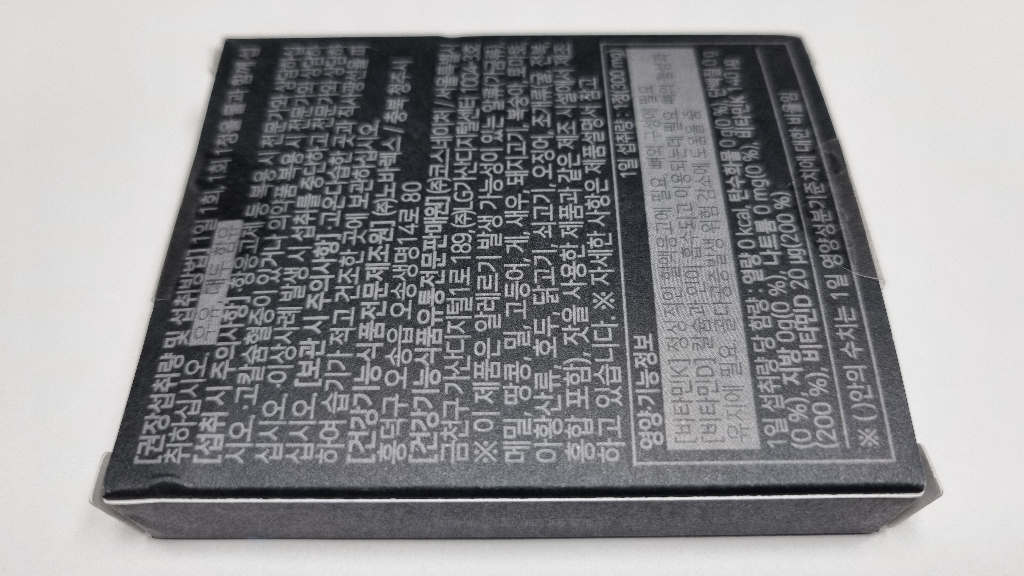 [권장섭취량 및 섭취방법] 1일 1회, 1회 1정을 물과 함께 섭
취하십시오. 우유, 대두 함유
[섭취 시 주의사항] 항응고제 등 복용 시 전문가와 상담하십
시오. ·고칼슘혈증이 있거나 의약품 복용 시 전문가와 상담하
십시오. ·이상사례 발생 시 섭취를 중단하고 전문가와 상담하
십시오. [보관 시 주의사항] 고온다습한 곳과 직사광선을 피
하여 습기가 적고 건조한 곳에 보관하십시오.
[건강기능식품전문제조원] (주)노바렉스 / 충북 청주시
흥덕구 오송읍 오송생명14로 80
[건강기능식품유통전문판매원] (주)코스네이저 / 서울특별시
금천구 가산디지털1로 189, (주)LG가산디지털센터 호
※ 이 제품은 알레르기 발생 가능성이 있는 알류(가금류),
메밀, 땅콩, 밀, 고등어, 게, 새우, 돼지고기, 복숭아, 토마토,
아황산류, 호두, 닭고기, 쇠고기, 오징어, 조개류(굴, 전복,
홍합 포함), 잣을 사용한 제품과 같은 제조 시설에서 제조
하고 있습니다. ※ 자세한 사항은 제품설명서 참고
영양·기능정보 1일 섭취량 : 1정(300 mg)
[비타민K] 정상적인 혈액응고에 필요, 뼈의 구성에 필요
[비타민D] 칼슘과 인이 흡수되고 이용되는데 필요, 뼈의 형성과
유지에 필요, 골다공증발생 위험 감소에 도움을 줌
1일 섭취량 당 함량 : 열량 0 kcal, 탄수화물 0 g(0 %), 단백질 0 g
(0 %), 지방 0 g(0 %), 나트륨 0 mg(0 %), 비타민K 140 μg
(200 %), 비타민D 20 μg(200 %)
※ ( )안의 수치는 1일 영양성분기준치에 대한 비율임